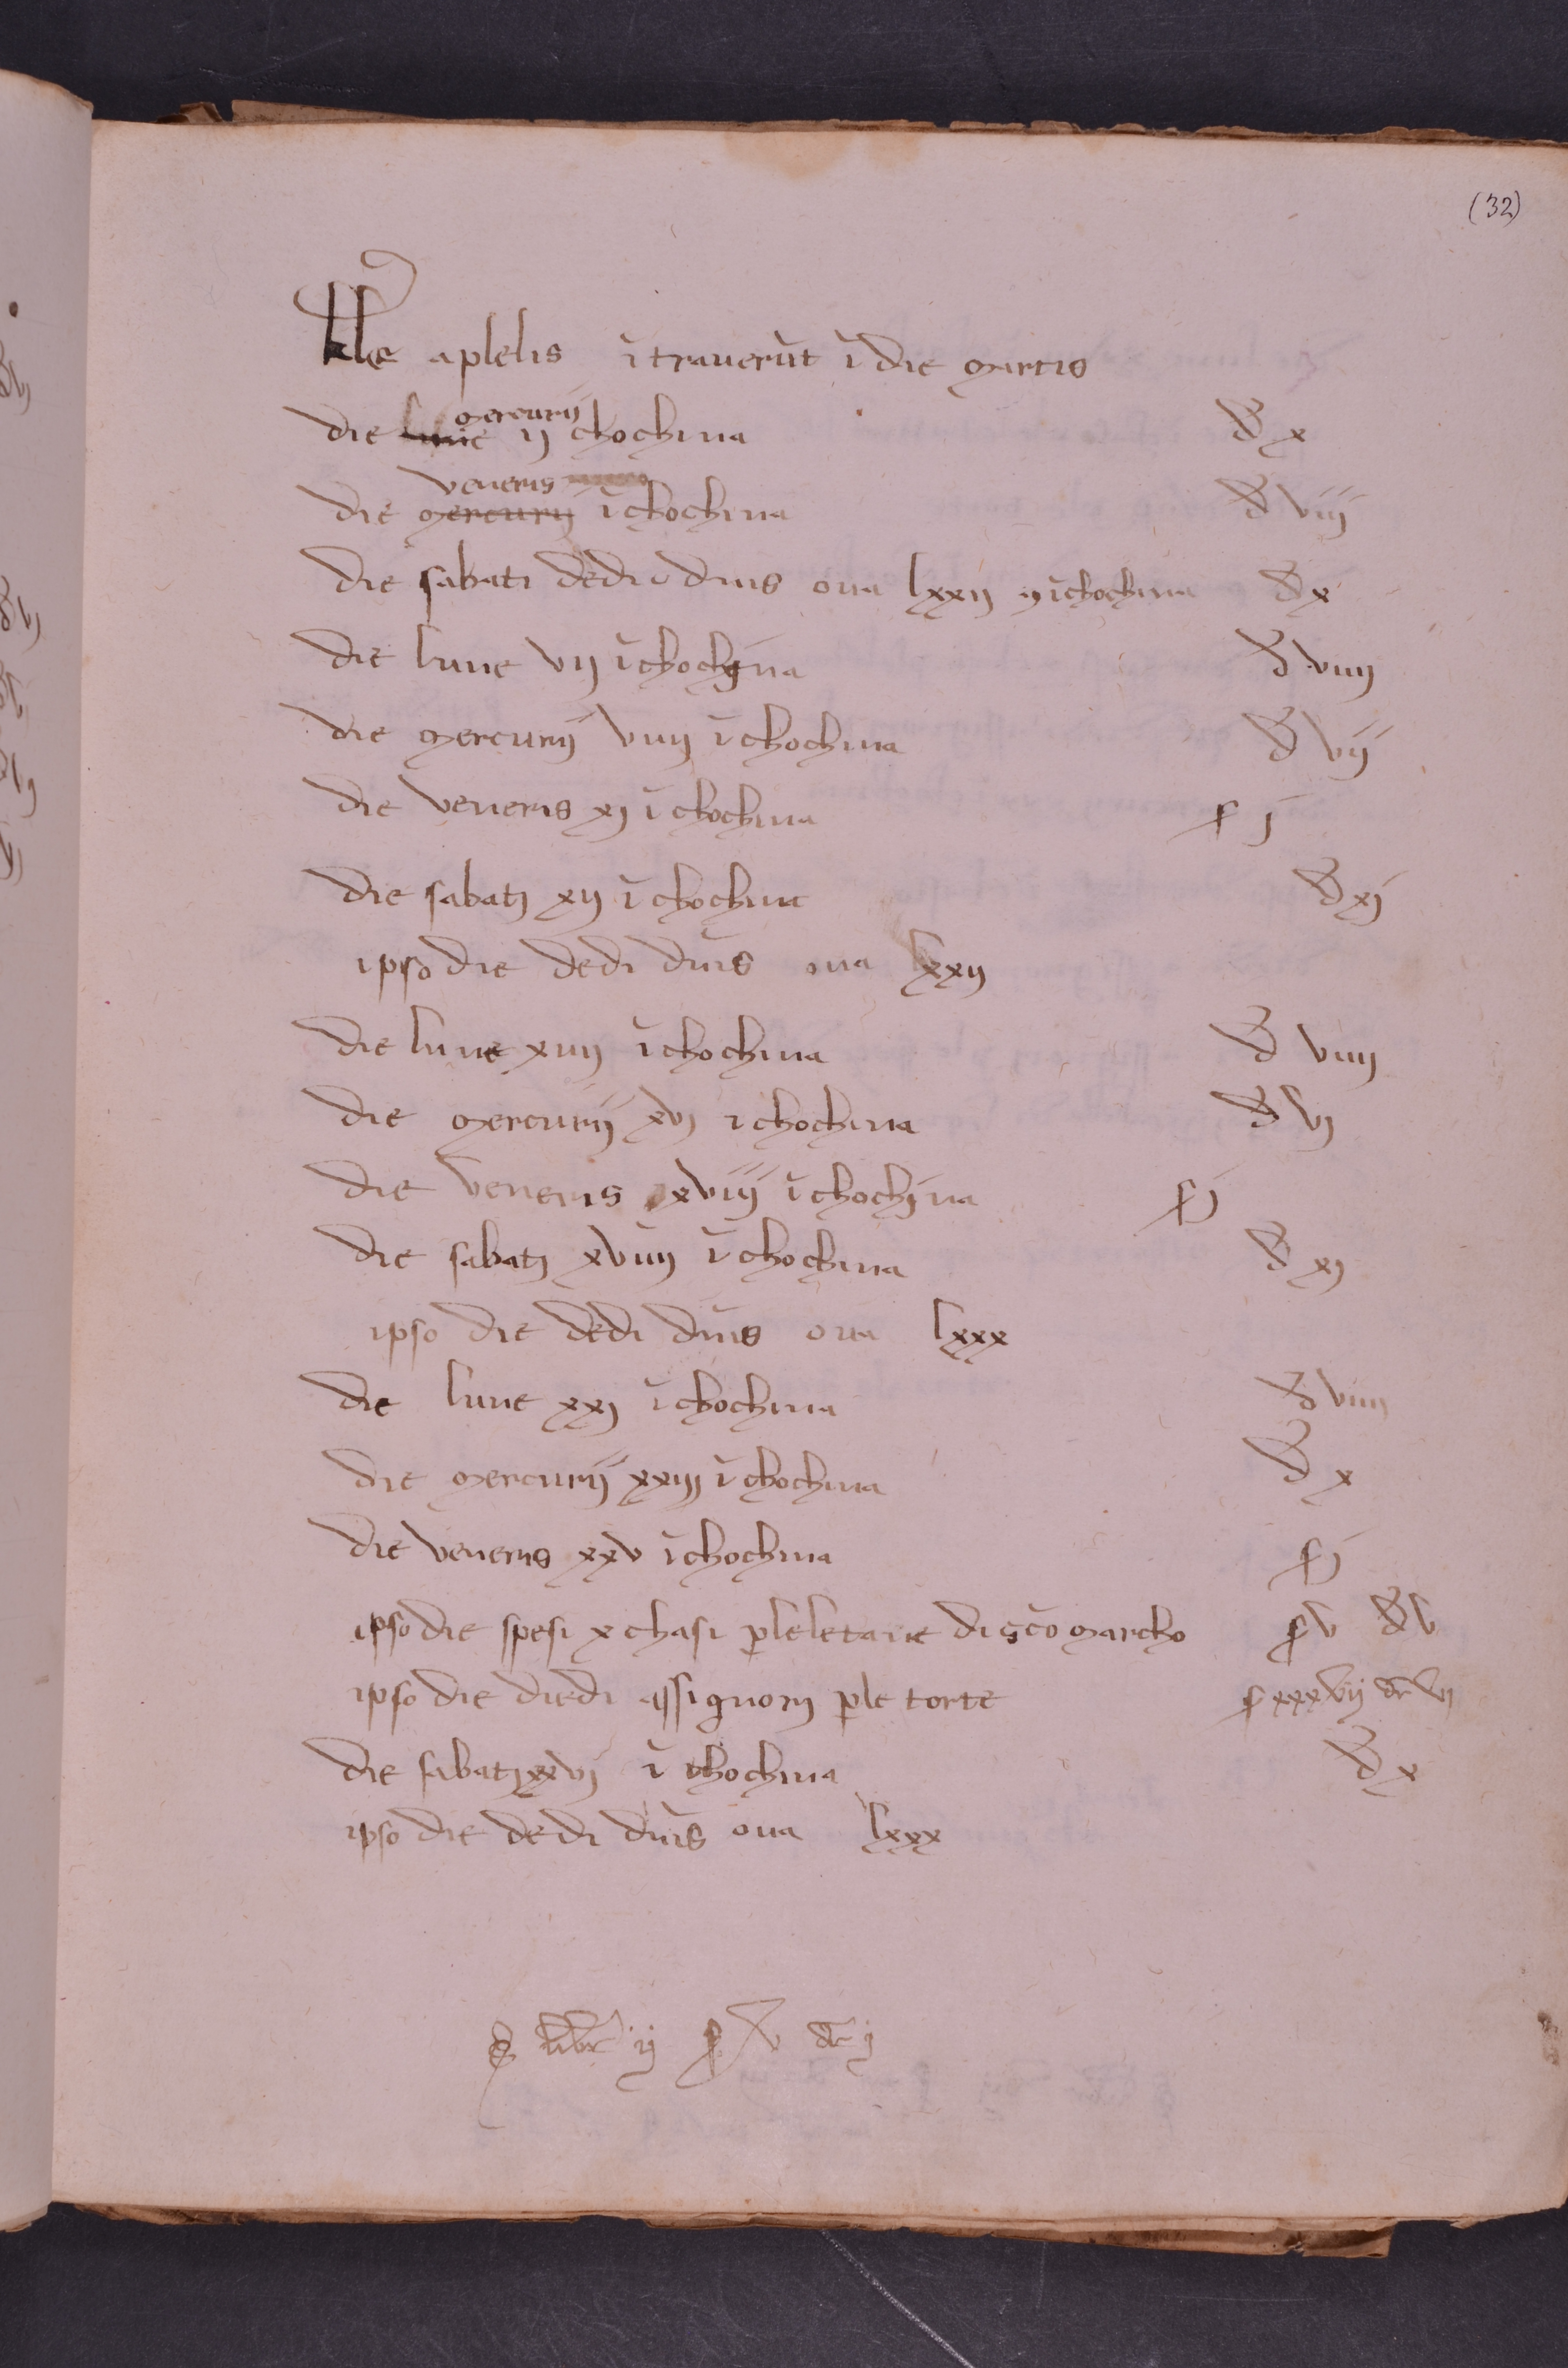 (32)
kle aplelis ĩtraverũt ĩ die martis
die lune mercurij ij chochina đ x
die mercurij veneris ĩ chochina đ viij
die sabati dedi dnis ova lxxij ĩ chochina đ x
die lune vij ĩ chochina đ viiij
die mercurij viiij ĩ chochina đ vij
die veneris xj ĩ chochina ş j
die sabatj xij ĩ chochina đ xj
ipso die dedi dnis ova lxxij
die lune xiiij ĩ chochina đ viiij
die mercurij xvj i chochina đ vj
die veneris xviij ĩ chochina ş j
die sabatj xviiij ĩ chochina đ xj
ipso die dedi dnis ova lxxx
die lune xxj ĩ chochina đ viiij
die mercurij xxiij ĩ chochina đ x
die veneris xxv ĩ chochina ş j
ipso die spesi x chasi p le letanie di sco marcho ş v đ v
ipso die diedi assignorj p le torte ş xxxvij dr vj
die sabatj xxvj ĩ chochina đ x
ipso die dedi dnis ova lxxx
ş libr ij ş x dr j